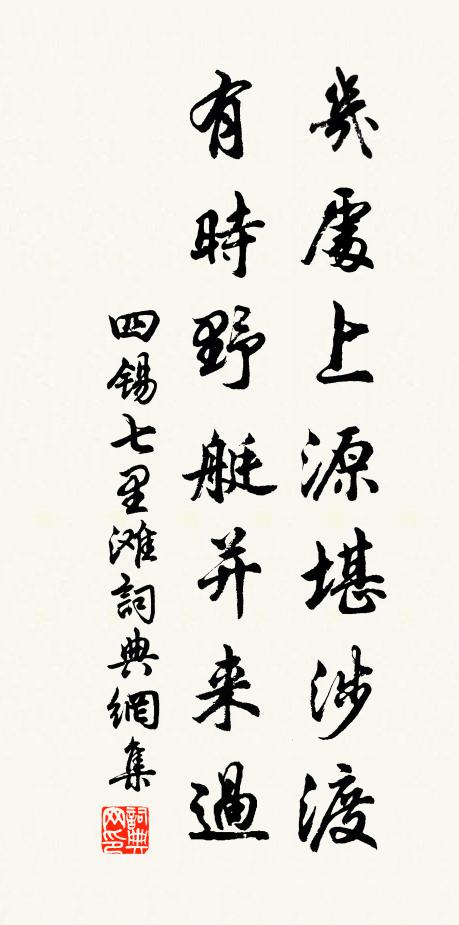 幾處上源堪涉渡
有時野艇并来過
四錫七里滩詞典網集
詞典网印